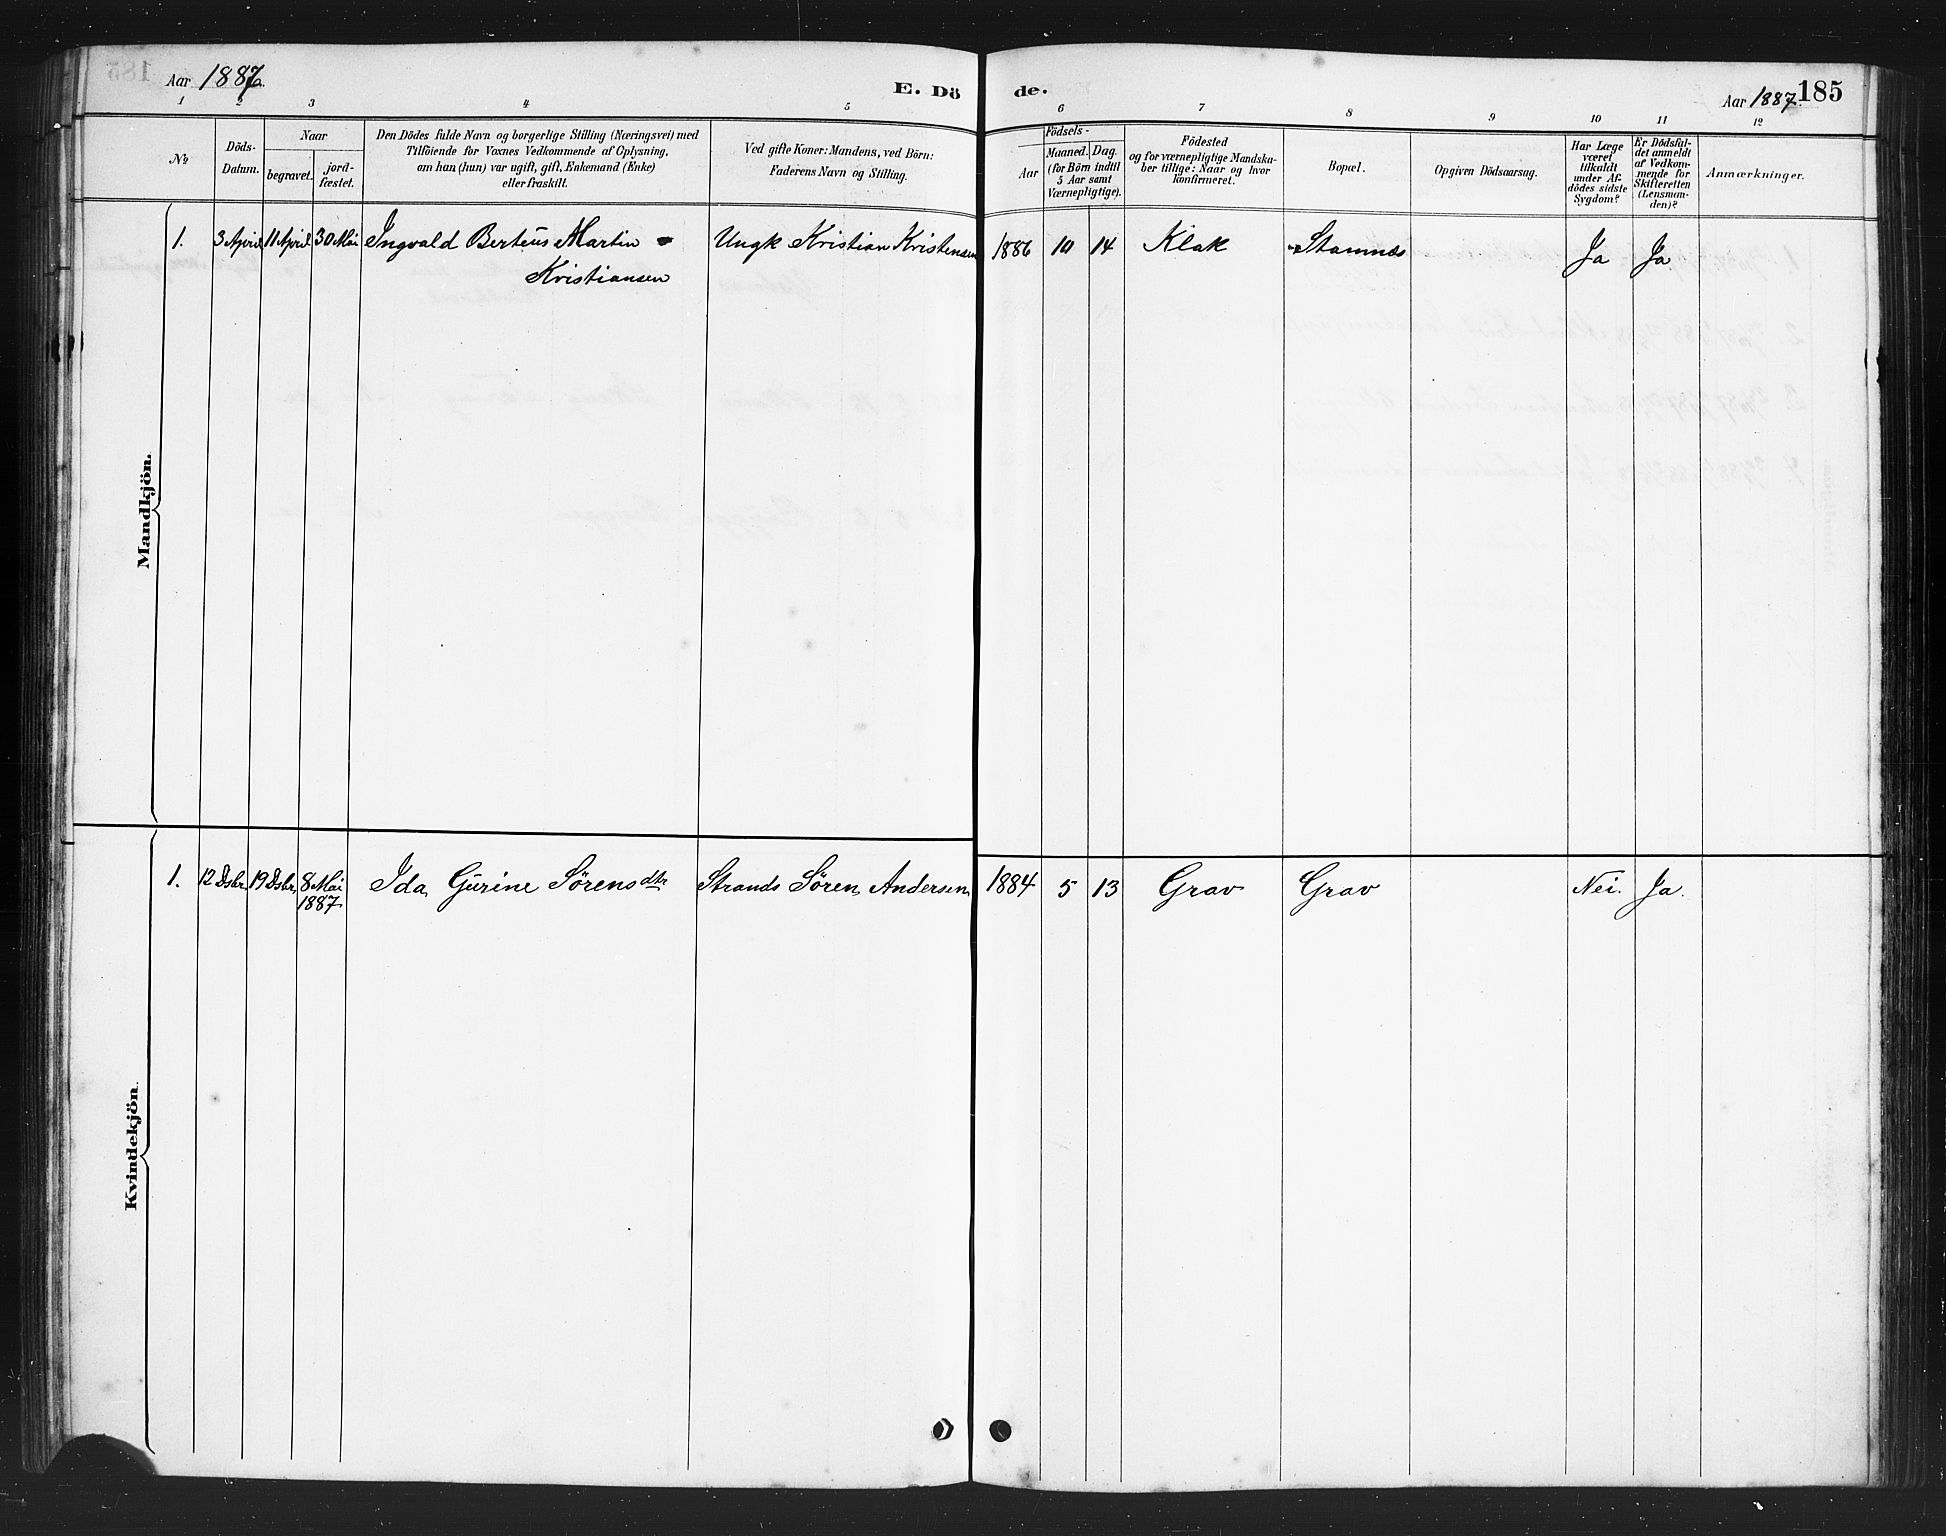 Aar 1887.
E. Dö
de.
Aar 1887.
185
1 2 3 4 5 6 7 8 9 10 11 12
No
Döds-
Datum.
Naar
begravet.
jord-
fæstet.
Den Dödes fulde Navn og borgerlige Stilling (Næringsvei) med
Tilföiende for Voxnes Vedkommende af Oplysning,
om han (hun) var ugift, gift, Enkemand (Enke)
eller fraskilt.
Ved gifte Koner: Mandens, ved Börn:
Faderens Navn og Stilling.
Födsels-
Aar
Maaned. Dag.
(for Börn indtil
5 Aar samt
Værnepligtige).
Födested
og for værnepligtige Mandska-
ber tillige: Naar og hvor
konfirmeret.
Bopæl.
Opgiven Dödsaarsag.
Har Læge
været
tilkaldt
under Af-
dödes sidste
Sygdom?
Er Dödsfal-
det anmeldt
af Vedkom-
mende for
Skifteretten
(Lensman-
den)?
Anmærkninger.
Mandkjön.
1. 3 April 11 April 30 Mai Ingvald Berteus Martin Ungk Kristian Kristensen 1886 10 14 Klak Stamnes Ja Ja
Kristiansen
Kvindekjön.
1. 12 Dsbr. 19 Dsbr. 8 Mai Ida Gurine Sörensdtr Strands Sören Andersen 1884 5 13 Grav Grav Nei. Ja.
1887